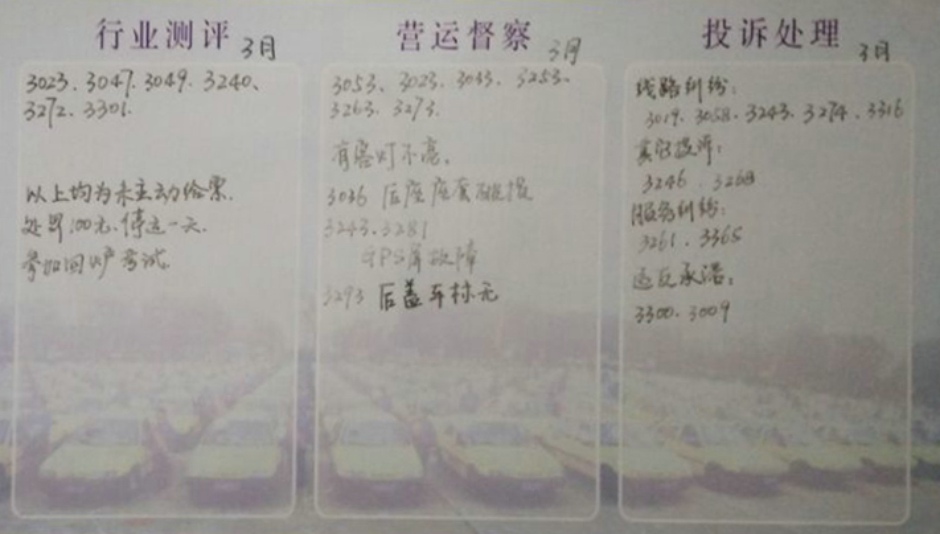 行业测评 3月
3023、3047、3049、3240、
3272、3301.
以上均为未主动给票.
处罚100元、停运一天.
参加回炉考试.
营运督察 3月
3053、3023、3033、3253、
3263、3273.
有客灯不亮.
3036 后座座套破损
3243.3281
GPS屏故障
3293 后盖车标无
投诉处理 3月
线路纠纷：
3019、3058、3243、3274、3316
表示投诉：
3246、3268
服务纠纷：
3261、3365
违反承诺：
3300、3009